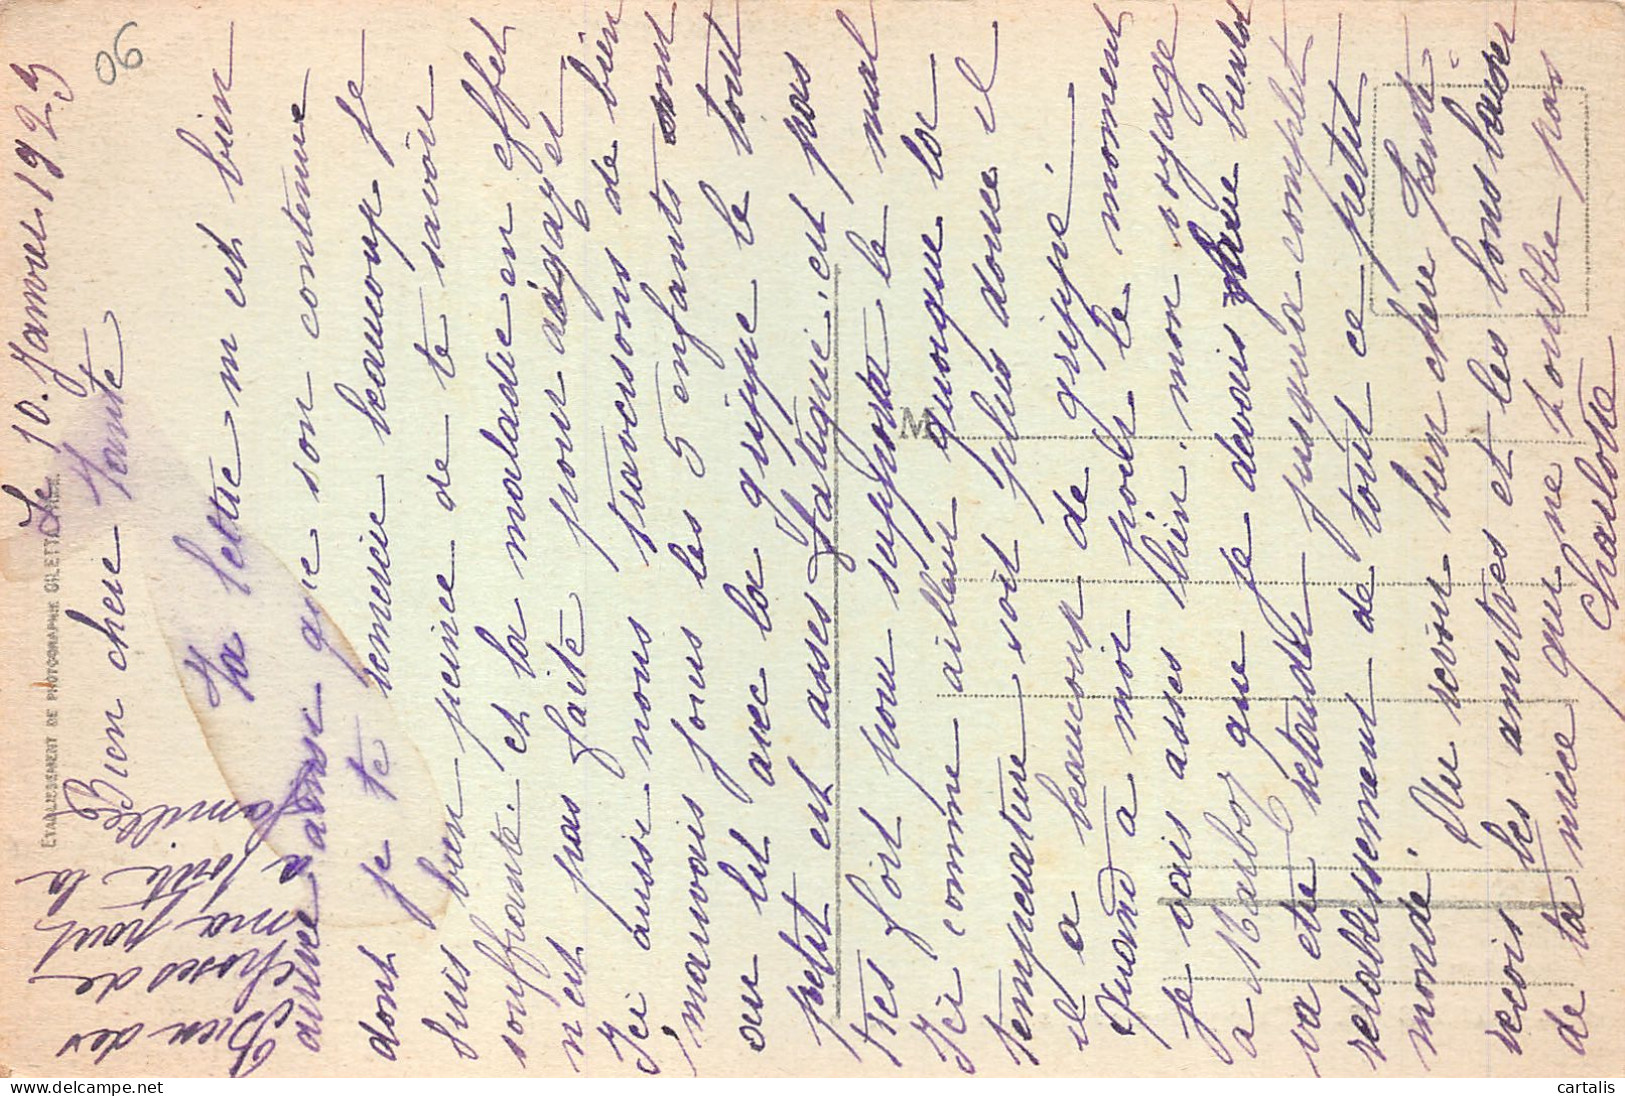 06
Le 10. Janvier 1923
Bien chere Tante
Ta lettre m est bien
arrivé ainsi que son contenue
dont je te remercie beaucoup je
suis bien peinee de te savoir
souffrante. et la maladie en effet
n'est pas faite pour régayer
Ici aussi nous traversons de bien
mauvais jours les 5 enfants sont
au lit avec la grippe le tout
petit est asses fatigué. est pas
tres fort pour supporter le mal
Ici comme ailleur quoique la
temperature soit plus douce il
il a beaucoup de grippé.
Quand a moi pour le moment
je vais asses bien. mon voyage
a que je devais faire bientot
va etre retarder jusqu'a complet
retablissement de tout ce petit
monde. Au revoir bien chere Tante
recois les amities et les bons baiser
de ta niece qui ne t'oublie pas
Charlotte
Bien des
choses de
ma part
a toute la
famille
ETABLISSEMENT DE PHOTOGRAPHIE GILETTA
M
cartalis